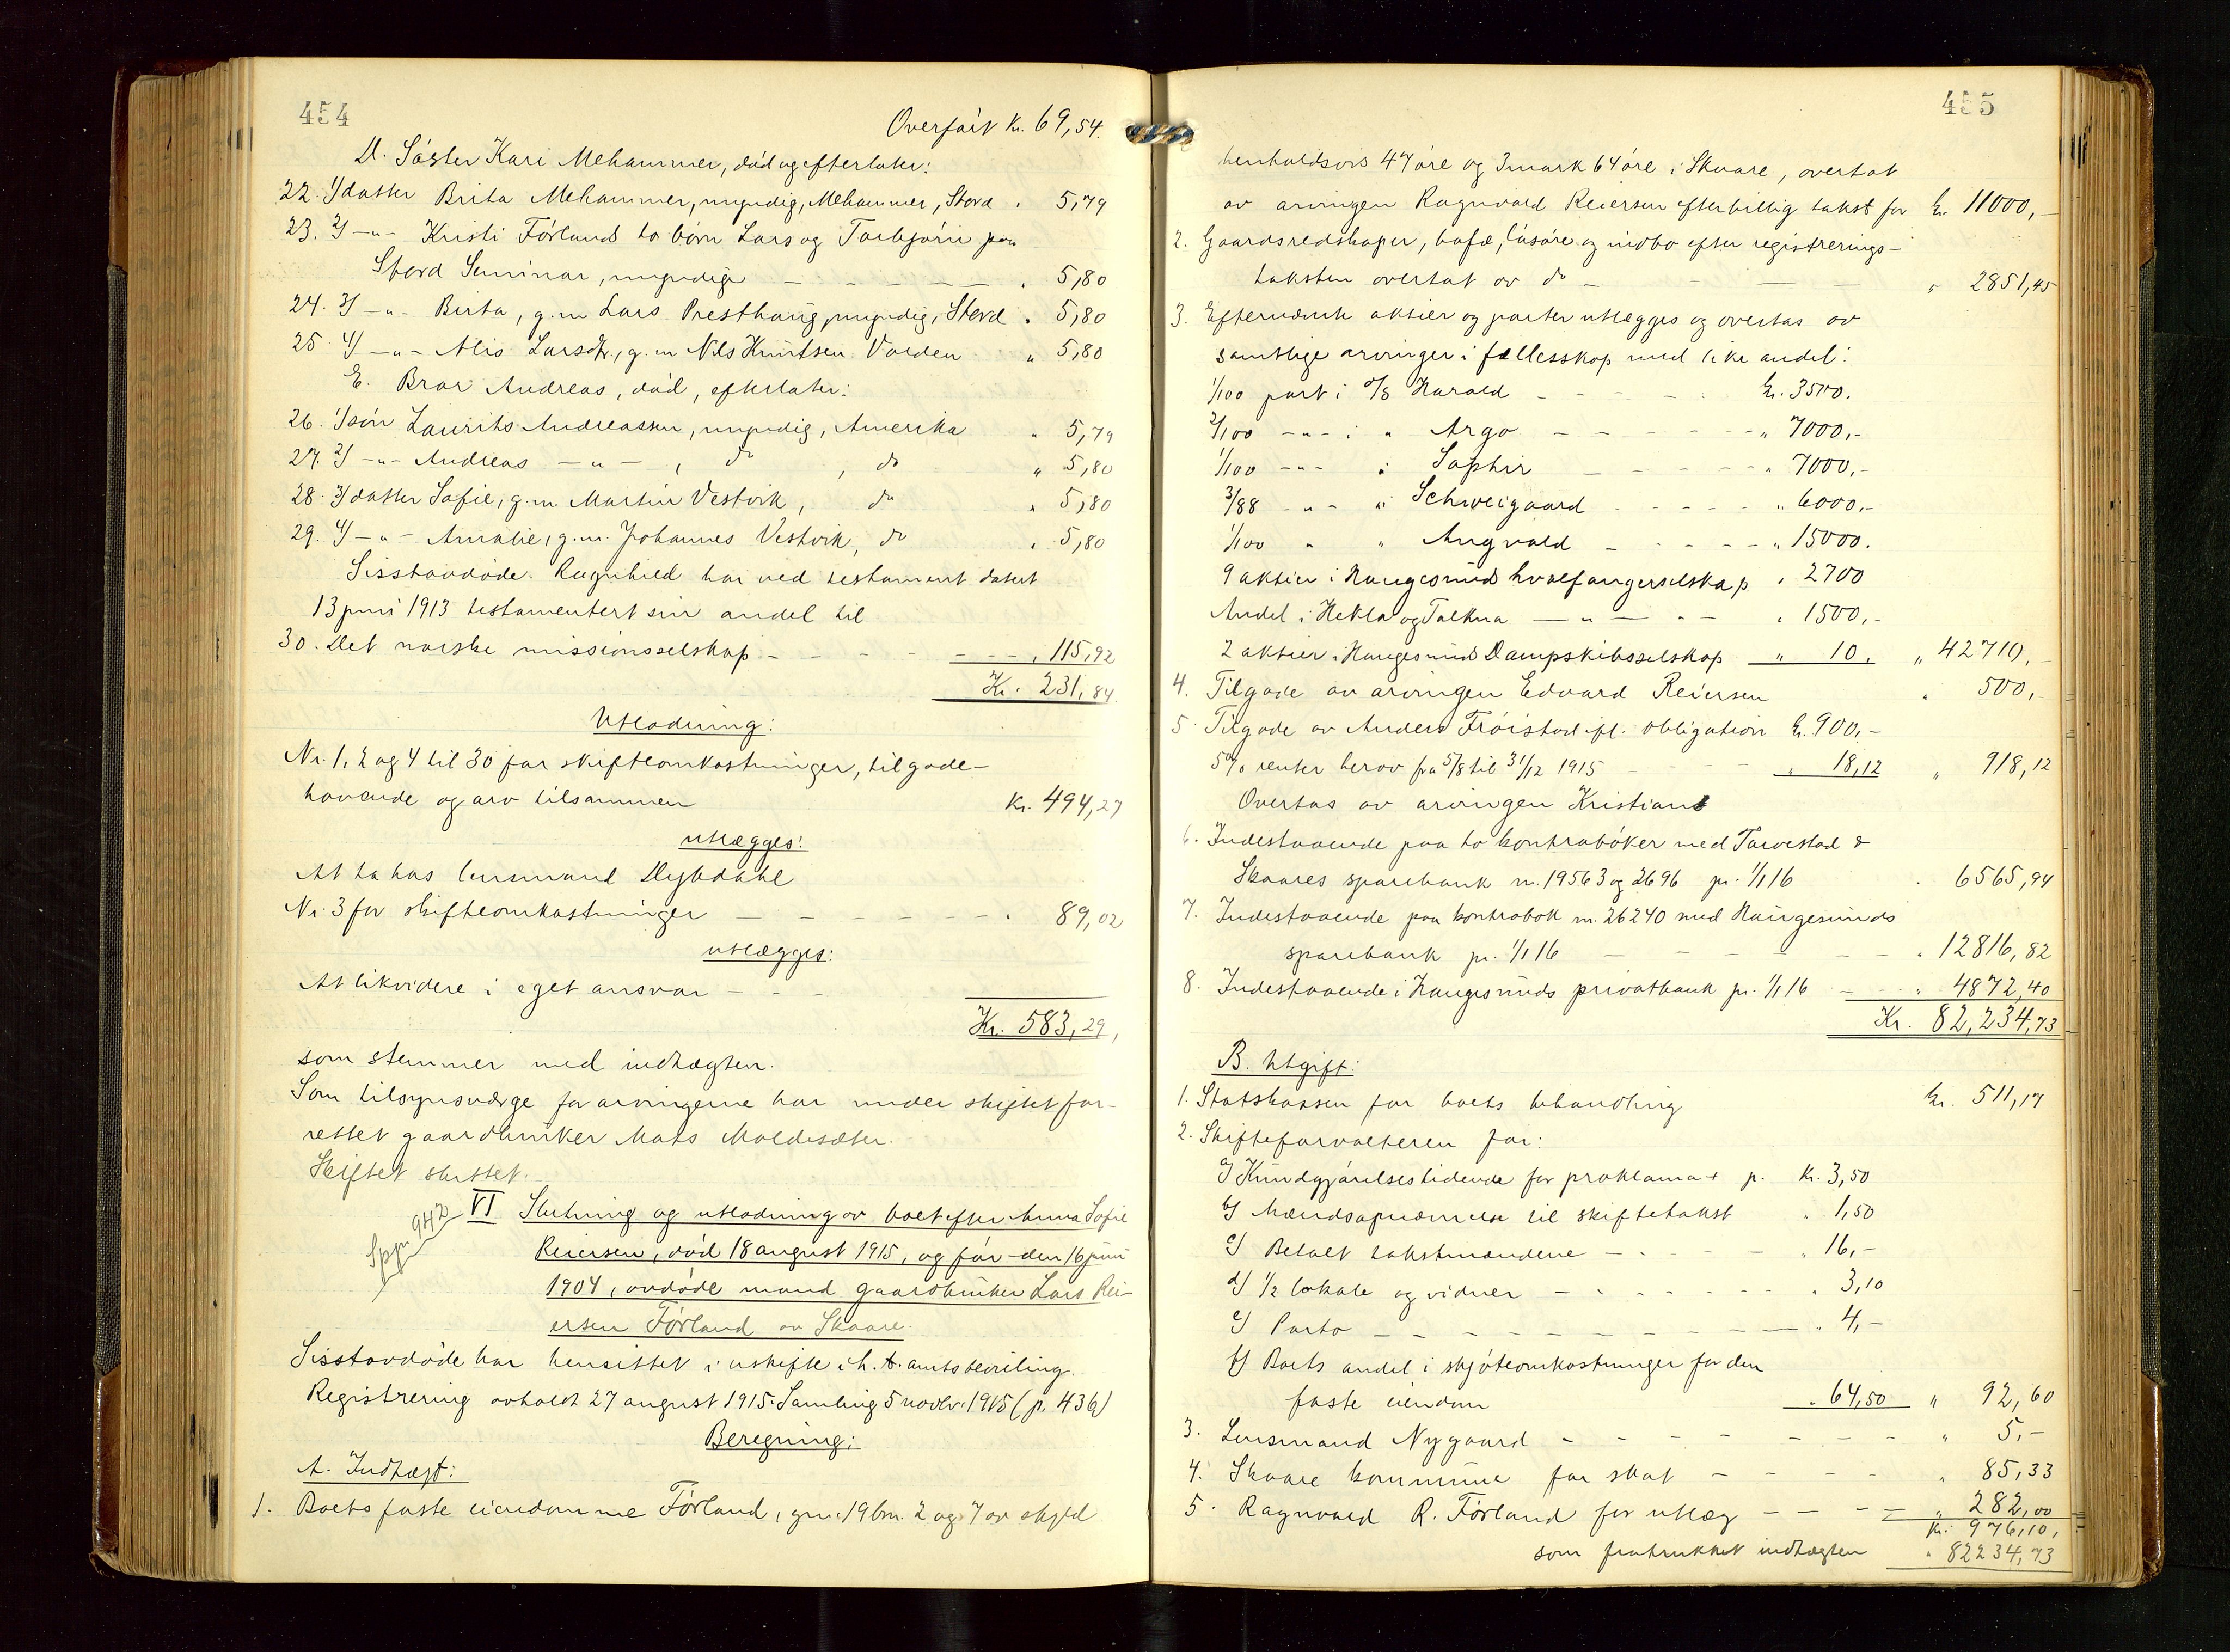 454
Overført Kr. 69,54.
D. Søster Kari Mehammer, død og efterlater:
22. 1) datter Brita Mehammer, myndig, Mehammer, Stord " 5,79
23. 2) -"- Kristi Førlands to børn Lars og Torbjørn paa
Stord Seminar, umyndige - - - - - " 5,80
24. 3) -"- Berta, g.m. Lars Presthaug, myndig, Stord " 5,80
25. 4) -"- Alis Larsdtr., g.m. Nils Knutsen Valden " 5,80
E. Bror Andreas, død, efterlater:
26. 1) søn Laurits Andreassen, myndig, Amerika " 5,79
27. 2) -"- Andreas -"- , do , do " 5,80
28. 3) datter Sofie, g.m. Martin Vestvik, do " 5,80
29. 4) -"- Amalie, g.m. Johannes Vestvik, do " 5,80
Sisstavdøde Ragnhild har ved testament datert
13 juni 1913 testamentert sin andel til
30. Det norske missionsselskap - - - - - - " 115,92
Kr. 231,84
Utlodning:
Nr. 1, 2 og 4 til 30 for skifteomkostninger, tilgode-
havende og arv tilsammen Kr. 494,27
utlægges:
At ta hos lensmand Dybdahl
Nr. 3 for skifteomkostninger - - - - - - - " 89,02
utlægges:
At likvidere i eget ansvar - - -
Kr. 583,29,
som stemmer med indtægten.
Som tilsynsværge for arvingerne har under skiftet for-
rettet gaardbruker Mats Moldesæter.
Skiftet sluttet.
Spp. 942
VI Slutning og utlodning av boet efter Anna Sofie
Reiersen, død 18 august 1915, og før den 16 juni
1904, avdøde mand gaardbruker Lars Rei-
ersen Førland av Skaare.
Sisstavdøde har hensittet i uskifte i h.t. amtsbevilling.
Registrering avholdt 27 august 1915. Samling 5 novbr. 1915 (p. 436)
Beregning:
A. Indtægt:
1. Boets faste eiendomme Førland, gnr. 19 bnr. 2 og 7 av skyld
455
henholdsvis 47 øre og 3 mark 64 øre i Skaare, overtat
av arvingen Ragnvald Reiersen efter billig takst for Kr. 11000,-
2. Gaardsredskaper, bufæ, løsøre og indbo efter registrerings-
taksten overtat av do - - - " 2851,45
3. Efternævnte aktier og parter utlægges og overtas av
samtlige arvinger i fællesskap med like andel:
1/100 part i D/S Harald - - - - - Kr. 3500.
2/100 -"- i " Argo - - - - - " 7000,-
1/100 -"- " Saphir - - - - - " 7000,-
3/88 -"- " Schweigaard - - - - - " 6000,-
1/100 " " Angvald - - - - - " 15000.
9 aktier i Haugesunds hvalfangerselskap " 2700
Andel i Hekla og Talkna -"- "- " 1500,-
2 aktier i Haugesunds Dampskibsselskap " 10, " 42710,-
4. Tilgode av arvingen Edvard Reiersen " 500,-
5. Tilgode av Anders Frøistad ifl. obligation Kr. 900,-
5% renter herav fra 5/8 til 31/12 1915 - - " 18,12 " 918,12
Overtas av arvingen Kristian
6. Indestaaende paa to kontrabøker med Torvestad &
Skaares sparebank nr. 19563 og 2696 pr. 1/1 16 " 6565,94
7. Indestaaende paa kontrabok nr. 26240 med Haugesunds
sparebank pr. 1/1 16 - - - - - - " 12816,82
8. Indestaaende i Haugesunds privatbank pr. 1/1 16 - - " 4872,40
Kr. 82,234,73
B. Utgift:
1. Statskassen for boets behandling Kr. 511,17
2. Skifteforvalteren for:
a) Kundgjørelsestidende for proklamat p. Kr. 3,50
b) Mændsopnævnelse til skiftetakst " 1,50
c) Betalt takstmændene - - - - " 16,-
d) 1/2 lokale og vidner - - - - - - " 3,10
e) Porto - - - - - - - - - " 4,-
f) Boets andel i skjøteomkostninger for den
faste eiendom " 64,50 " 92,60
3. Lensmand Nygaard - - - - - - - " 5,-
4. Skaare kommune for skat - - - - " 85,33
5. Ragnvald R. Førland for utlæg - - - - " 282,00
Kr. 976,10,
som fratrukket indtægten " 82234,73